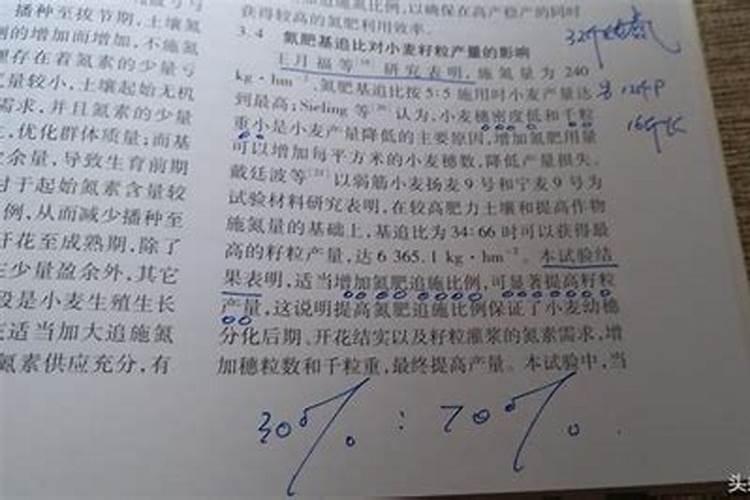 播种至拔节期,土壤氮
的增加而增加,不施氮
存在着氮素的少量亏
量较小,土壤起始无机
需求,并且氮素的少量
,优化群体质量;而基
余量,导致生育前期
对于起始氮素含量较
例,从而减少播种至
开花至成熟期,除了
少量盈余外,其它
段是小麦生殖生长
适当加大追施氮
氮素供应充分,有
施氮比例,以确保在高产稳产的同时
获得较高的氮肥利用效率。
3.4 氮肥基追比对小麦籽粒产量的影响
王月福等 研究表明,施氮量为 240
kg·hm⁻²、氮肥基追比按 5:5 施用时小麦产量达
到最高;Sieling 等 认为,小麦穗密度低和千粒
重小是小麦产量降低的主要原因,增加氮肥用量
可以增加每平方米的小麦穗数,降低产量损失。
戴廷波等 以弱筋小麦扬麦 9 号和宁麦 9 号为
试验材料研究表明,在较高肥力土壤和提高作物
施氮量的基础上,基追比为 34:66 时可以获得最
高的籽粒产量,达 6 365.1 kg·hm⁻²。本试验结
果表明,适当增加氮肥追施比例,可显著提高籽粒
产量,这说明提高氮肥追施比例保证了小麦幼穗
分化后期、开花结实以及籽粒灌浆的氮素需求,增
加穗粒数和千粒重,最终提高产量。本试验中,当
30% : 70%
头